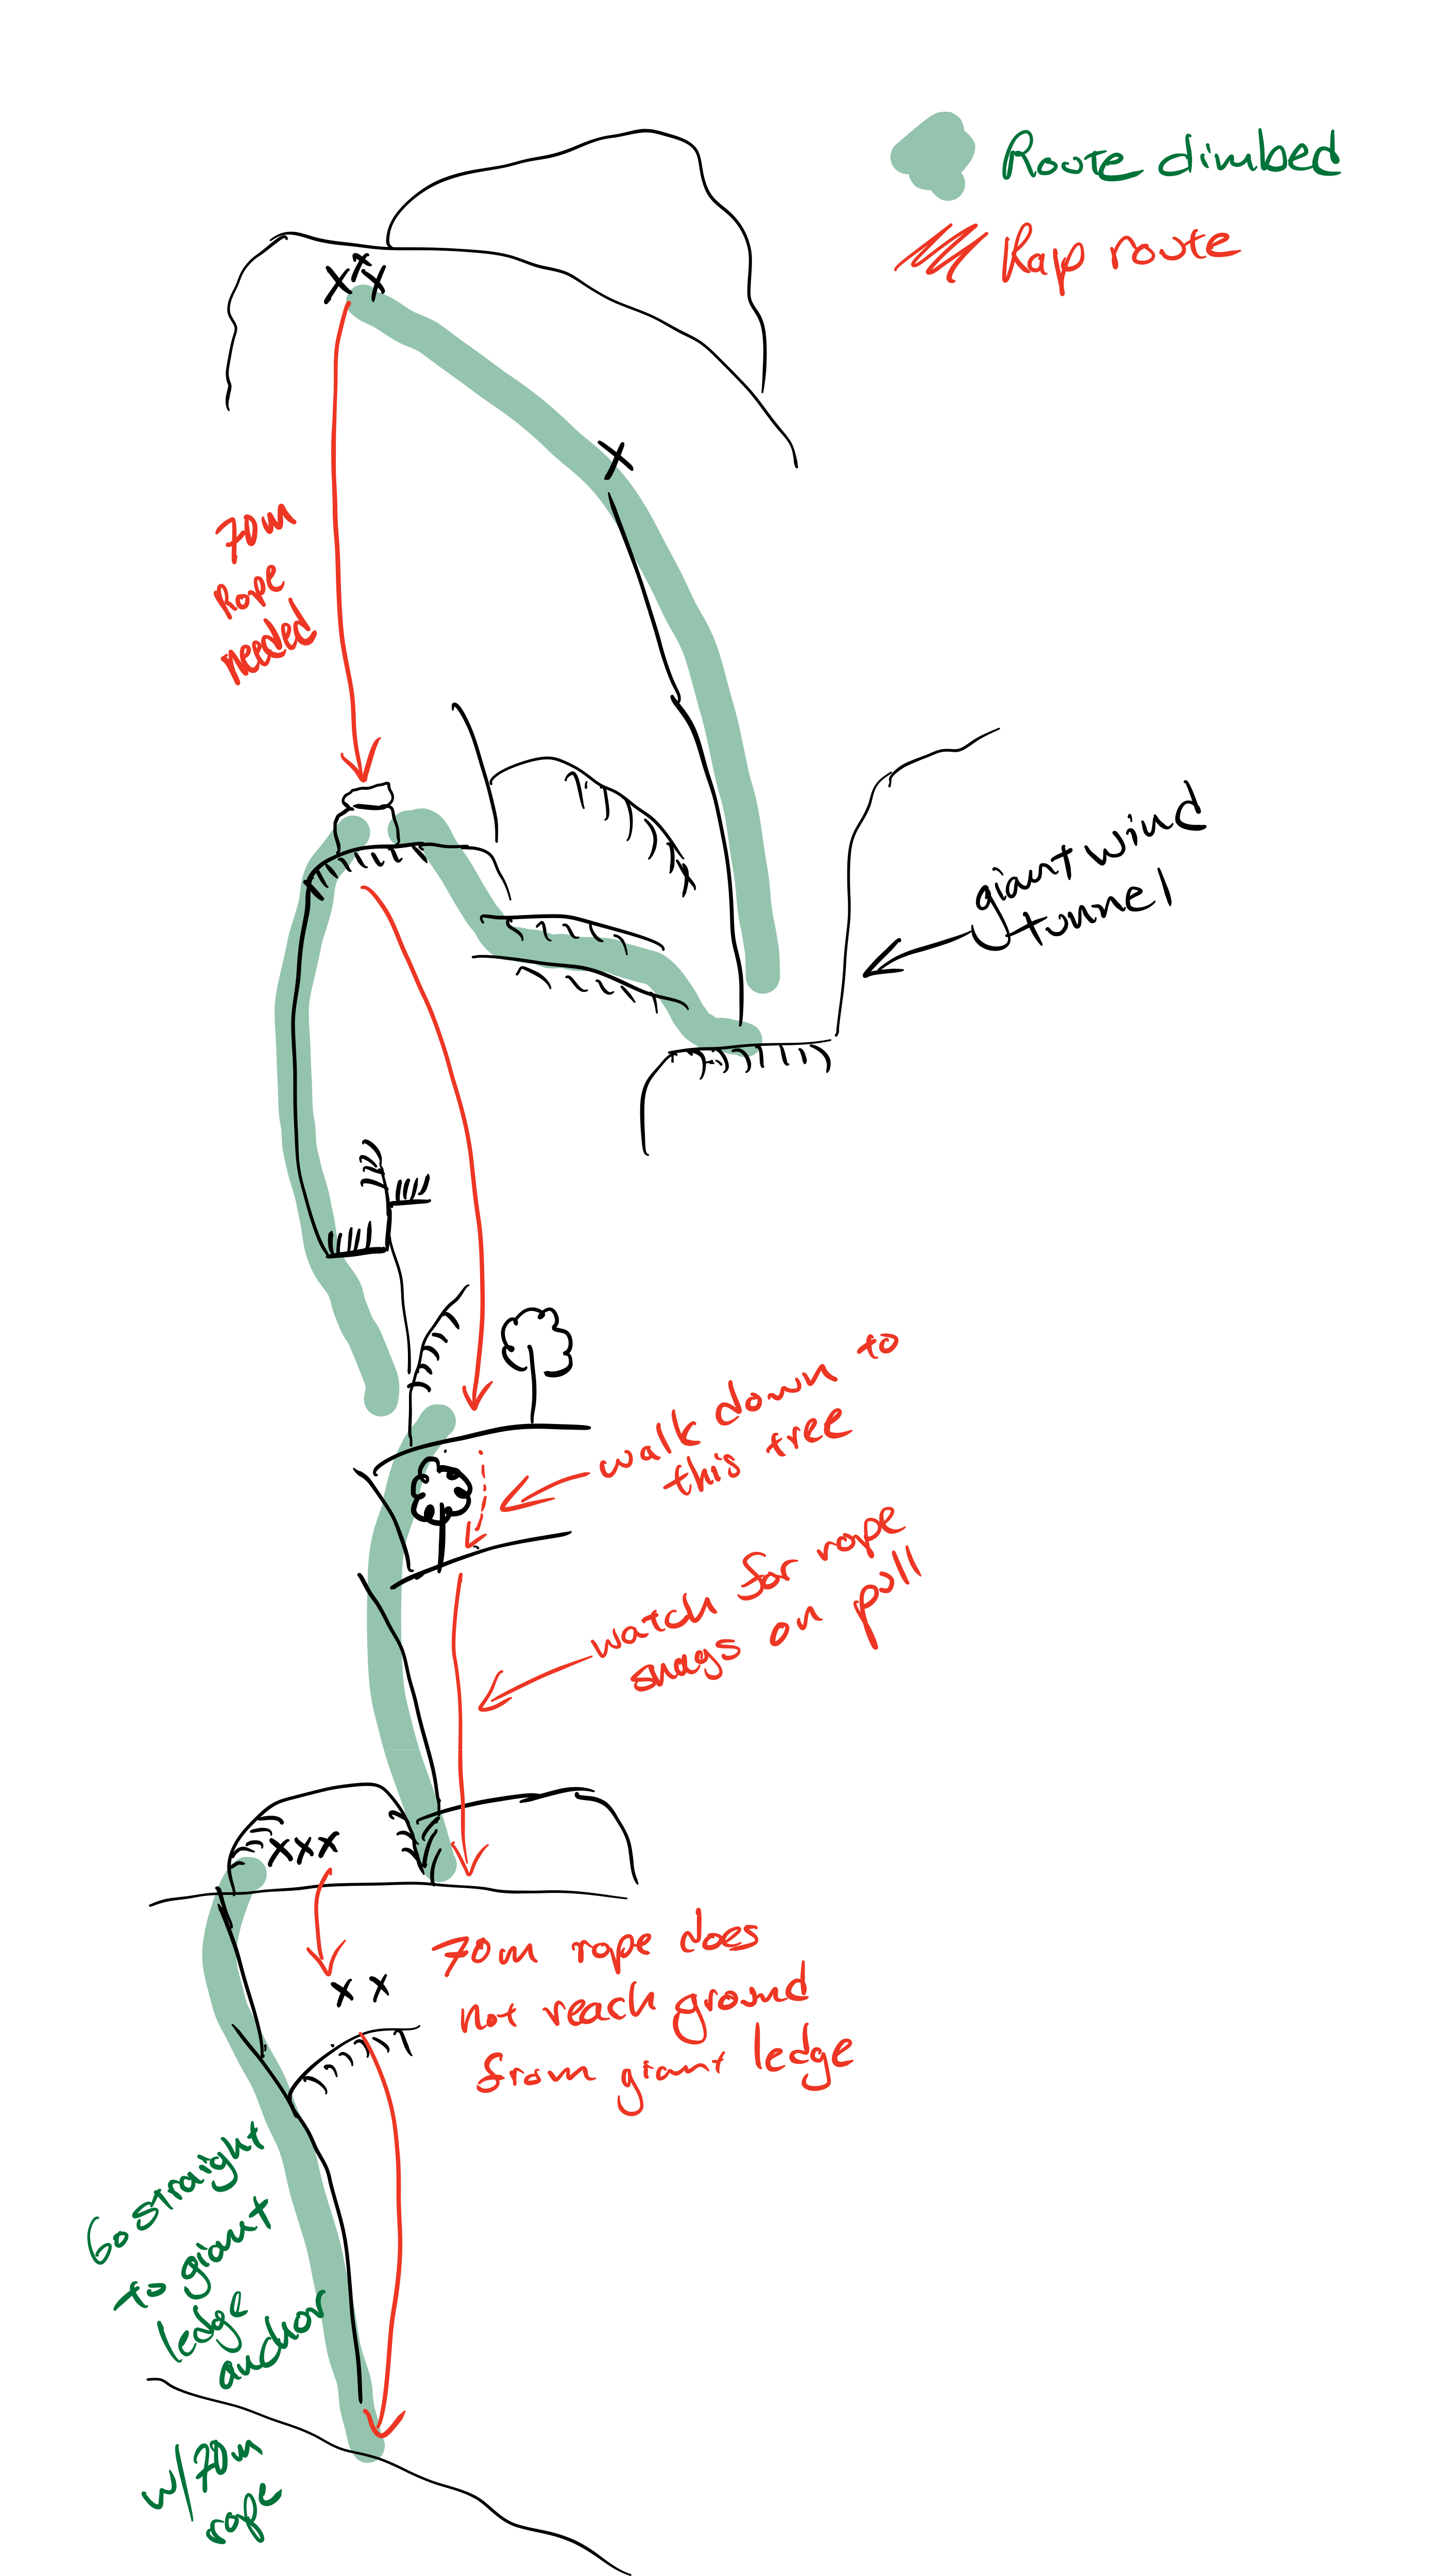 Route climbed
Rap route
70m
Rope
needed
giant wind
tunnel
walk down to
this tree
watch for rope
snags on pull
70m rope does
not reach ground
from giant ledge
Go straight
to giant
ledge
anchor
w/70m
rope